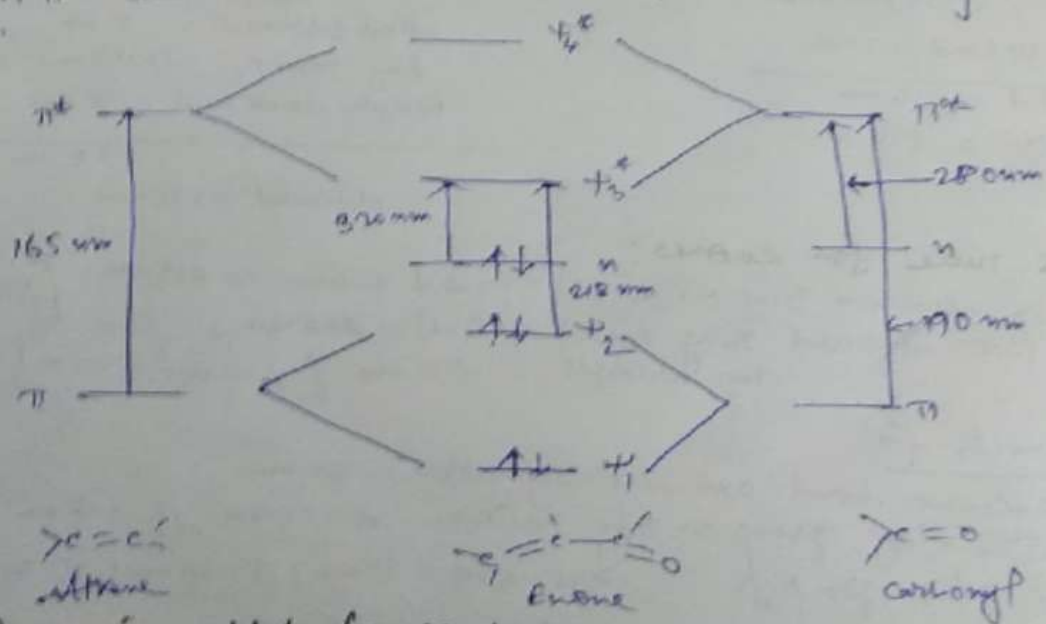 ψ₄*
π*
π*
ψ₃*
280 nm
320 nm
165 nm
n
n
218 nm
ψ₂
190 nm
π
π
ψ₁
>C=C<
C=C-C=O
>C=O
Enone
Carbonyl